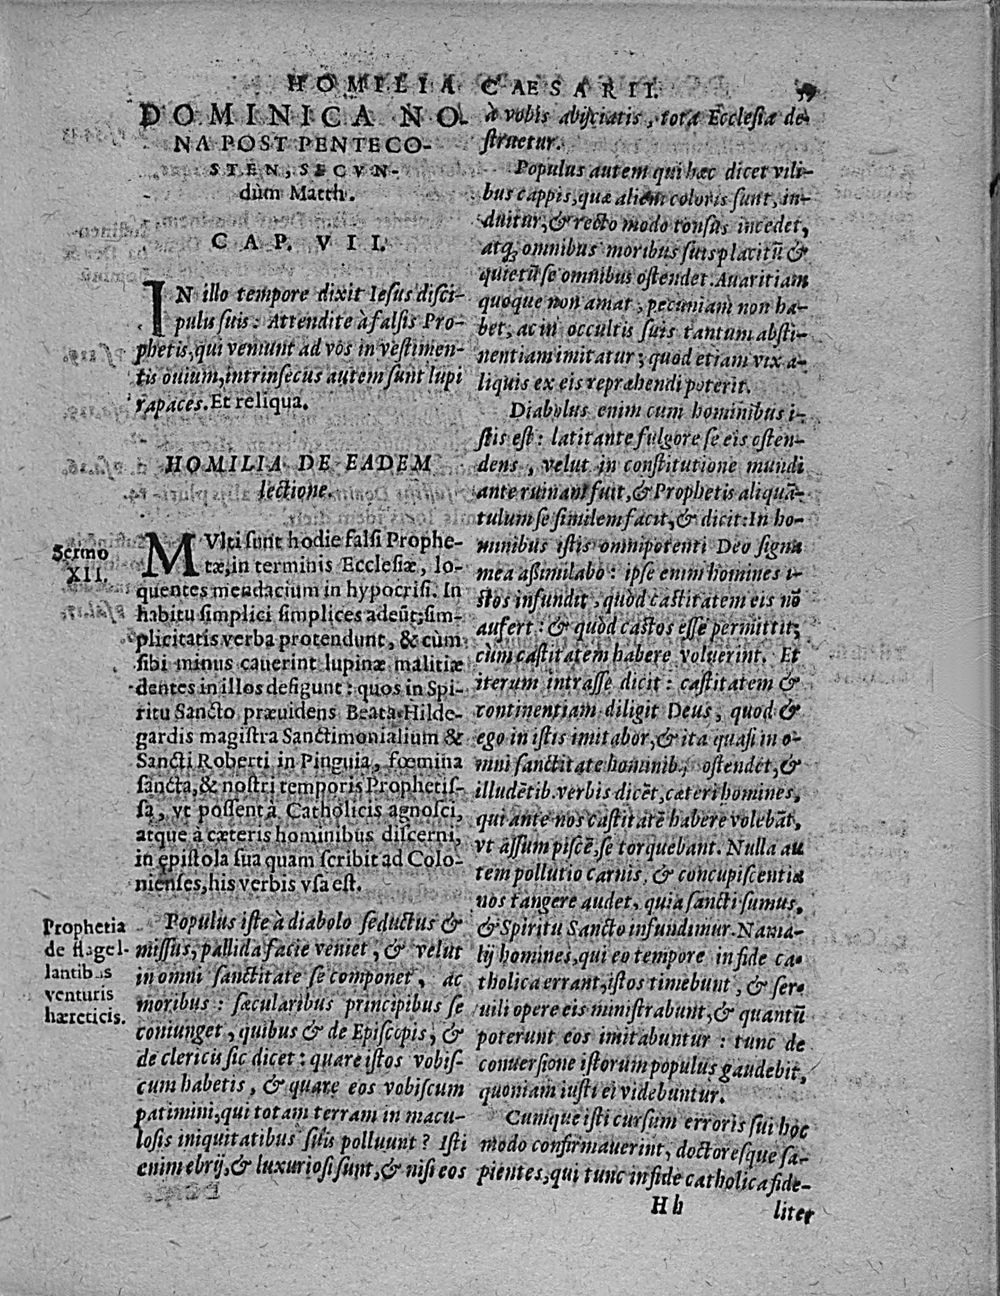 HOMILIA CAESARII.
DOMINICA NO-
NA POST PENTECO-
STEN, SECVN-
dùm Matth.
CAP. VII.
IN illo tempore dixit Iesus disci-
pulis suis: Attendite à falsis Pro-
phetis, qui veniunt ad vos in vestimen-
tis ouium, intrinsecus autem sunt lupi
rapaces. Et reliqua.
HOMILIA DE EADEM
lectione.
Sermo
XII.
MVlti sunt hodie falsi Prophe-
tæ, in terminis Ecclesiæ, lo-
quentes mendacium in hypocrisi. In
habitu simplici simplices adeūt; sim-
plicitatis verba protendunt, & cùm
sibi minus cauerint lupinæ malitiæ
dentes in illos defigunt: quos in Spi-
ritu Sancto præuidens Beata Hilde-
gardis magistra Sanctimonialium &
Sancti Roberti in Pinguia, fœmina
sancta, & nostri temporis Prophetis-
sa, vt possent à Catholicis agnosci,
atque à cæteris hominibus discerni,
in epistola sua quam scribit ad Colo-
nienses, his verbis vsa est.
Prophetia
de flagel-
lantibus
venturis
hæreticis.
Populus iste à diabolo seductus &
missus, pallida facie veniet, & velut
in omni sanctitate se componet, ac
moribus: sæcularibus principibus se
coniunget, quibus & de Episcopis, &
de clericis sic dicet: quare istos vobis-
cum habetis, & quare eos vobiscum
patimini, qui totam terram in macu-
losis iniquitatibus suis polluunt? Isti
enim ebrij, & luxuriosi sunt, & nisi eos
à vobis abijciatis, tota Ecclesia de-
struetur.
Populus autem qui hæc dicet vili-
bus cappis, quæ alieni coloris sunt, in-
duitur, & recto modo tonsus incedet,
atq; omnibus moribus suis placitū &
quietū se omnibus ostendet. Auaritiam
quoque non amat, pecuniam non ha-
bet, ac in occultis suis tantum absti-
nentiam imitatur; quod etiam vix a-
liquis ex eis reprehendi poterit.
Diabolus enim cum hominibus i-
stis est: latitante fulgore se eis osten-
dens, velut in constitutione mundi
ante ruinam fuit, & Prophetis aliquā-
tulum se similem facit, & dicit: In ho-
minibus istis omnipotenti Deo signa
mea aßimilabo: ipse enim homines i-
stos infundit, quòd castitatem eis nō
aufert: & quòd castos esse permittit;
cùm castitatem habere voluerint. Et
iterum intra se dicit: castitatem &
continentiam diligit Deus, quod &
ego in istis imitabor, & ita quasi in o-
mni sanctitate hominib. ostendet, &
illudētib. verbis dicēt, cæteri homines,
qui ante nos castitatē habere volebāt,
vt assum piscē, se torquebant. Nulla au
tem pollutio carnis, & concupiscentia
nos tangere audet, quia sancti sumus,
& Spiritu Sancto infundimur. Nam a-
lij homines, qui eo tempore in fide ca-
tholica errant, istos timebunt, & ser-
uili opere eis ministrabunt, & quantū
poterunt eos imitabuntur: tunc de
conuersione istorum populus gaudebit,
quoniam iusti ei videbuntur.
Cumque isti cursum erroris sui hoc
modo confirmauerint, doctores que sa-
pientes, qui tunc in fide catholica fide-
Hh
liter